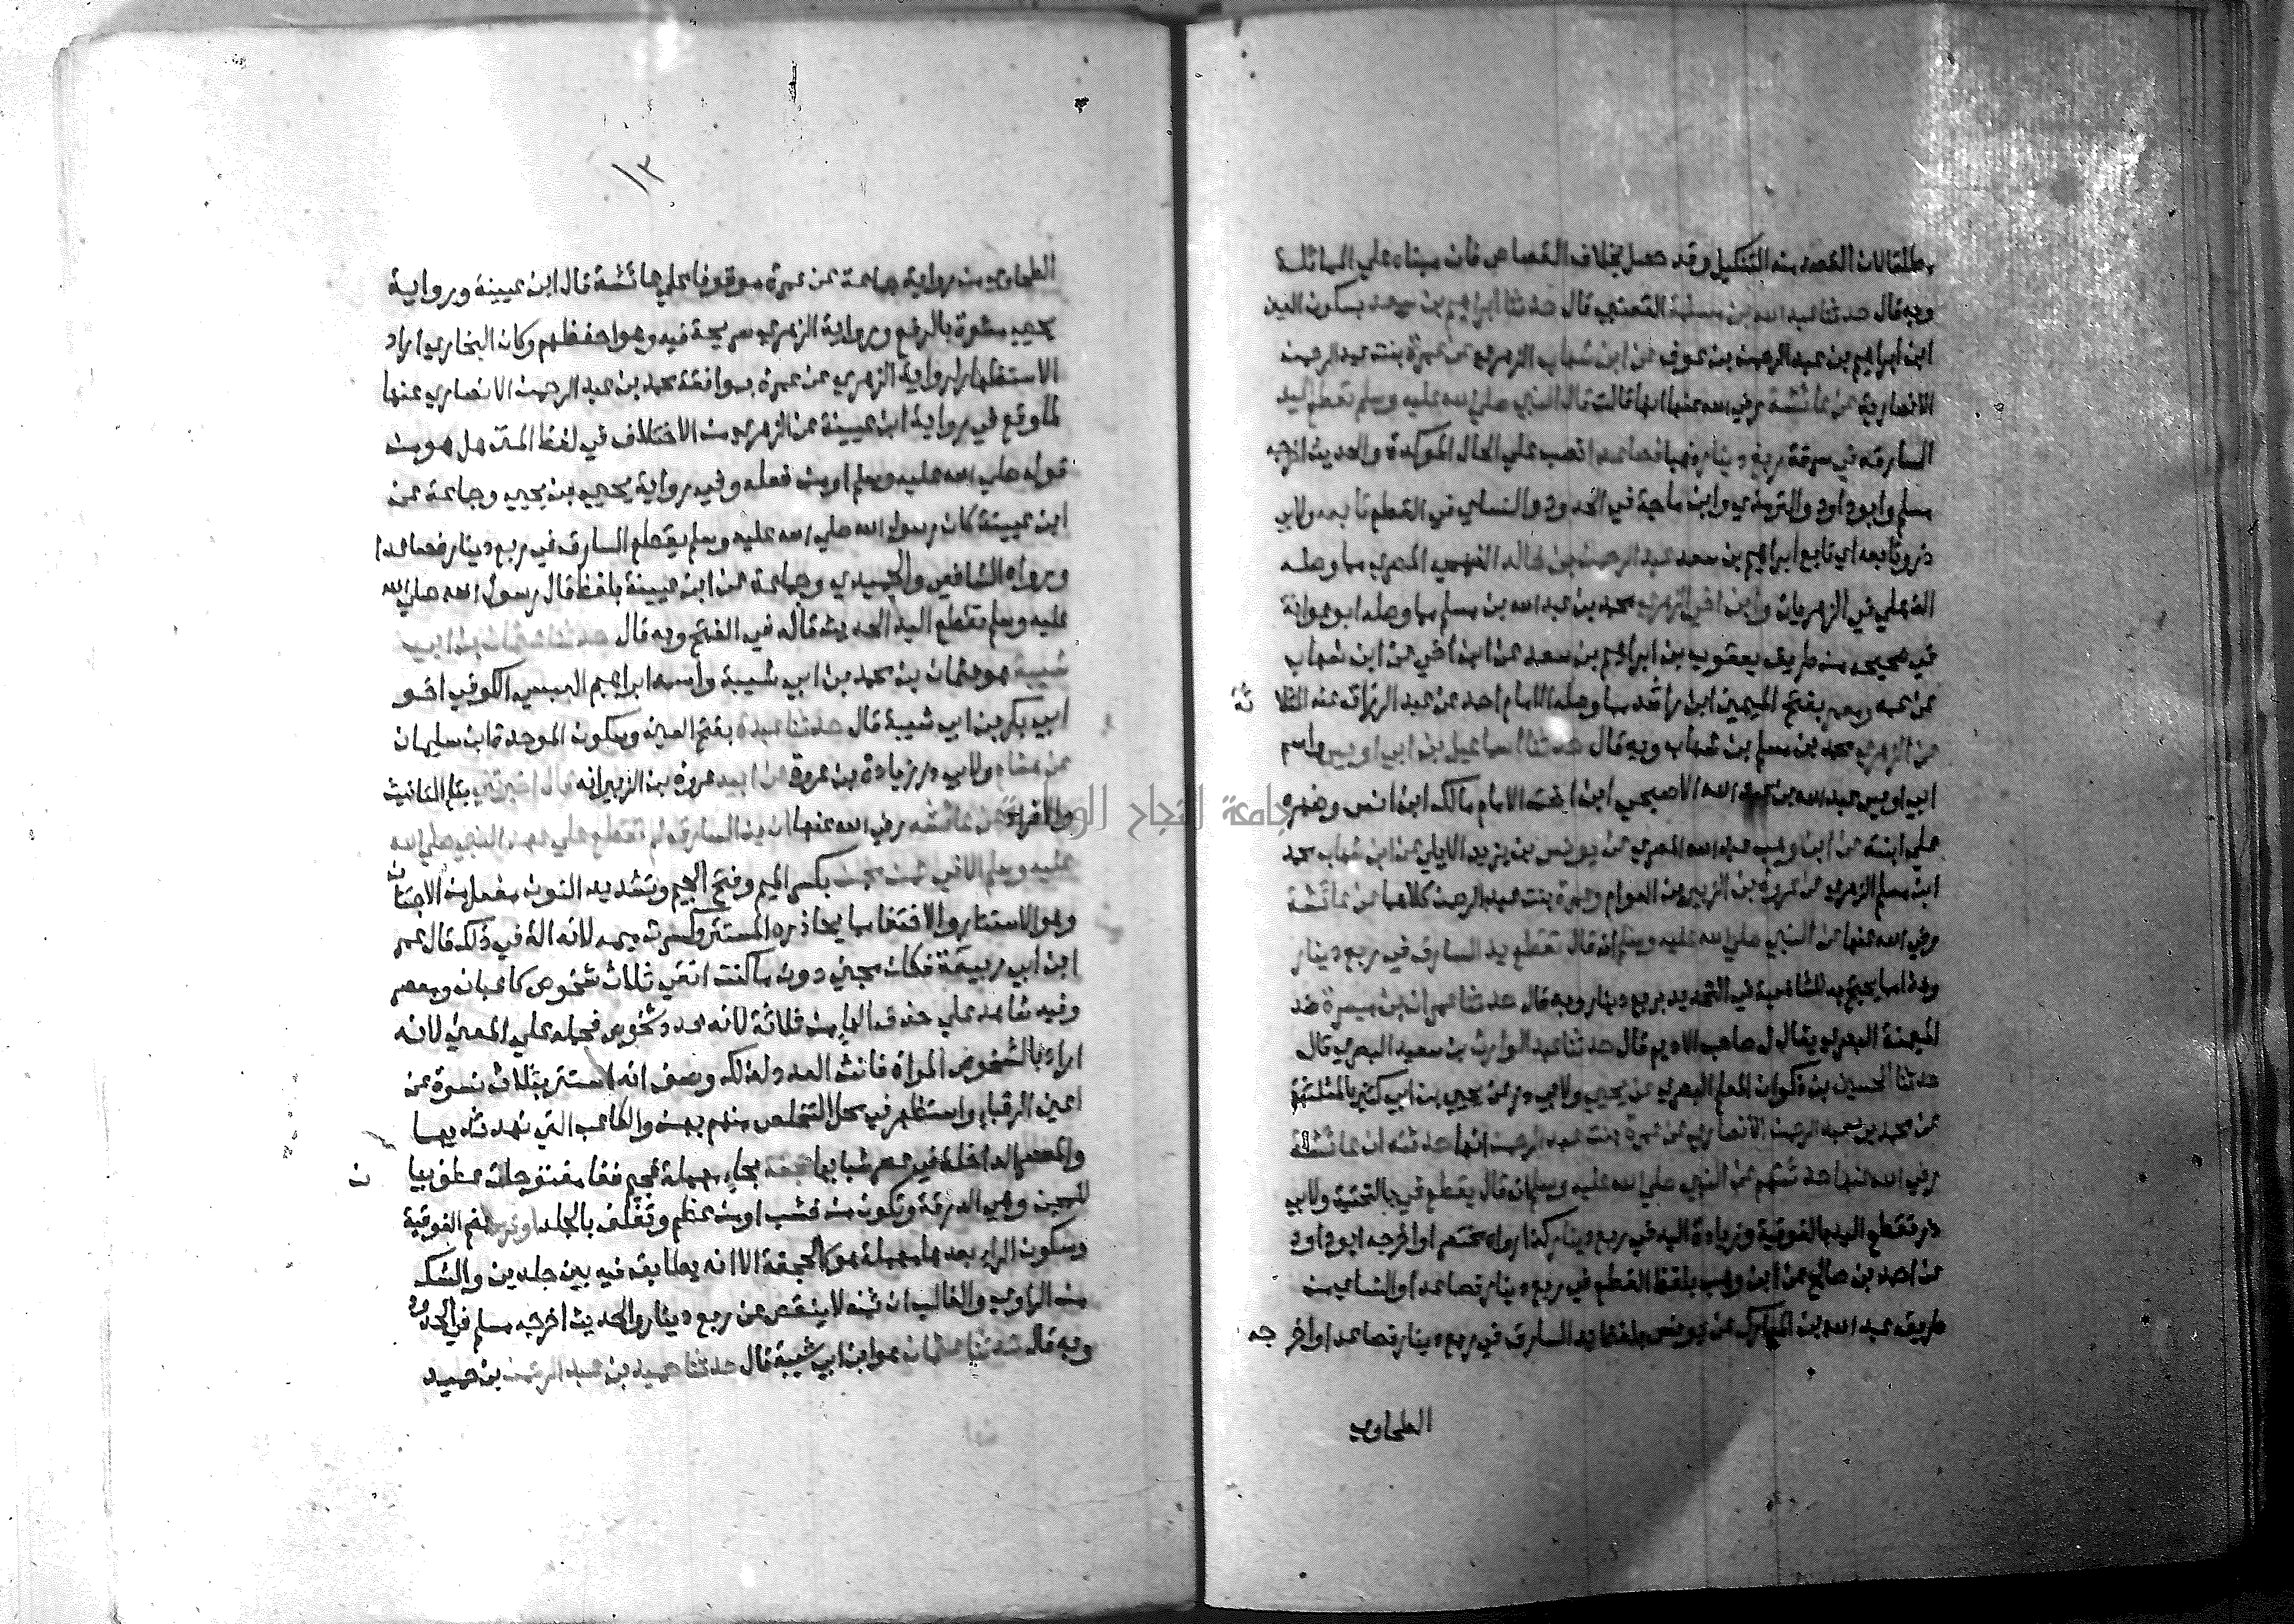 وبه قال حدثنا عبد الله بن مسلمة القعنبي قال حدثنا ابراهيم بن سعد بسكون العين
ابن ابراهيم بن عبد الرحمن بن عوف عن ابن شهاب الزهري عن عمرة بنت عبد الرحمن
الانصارية عن عائشة رضي الله عنها انها قالت قال النبي صلي الله عليه وسلم تقطع اليد
السارقه في سرقة ربع دينار فصاعدا نصب علي الحال الموكدة والحديث اخرجه
مسلم وابوداود والترمذي وابن ماجة في الحدود والنساي في القطع تابعه ولابي
ذر وتابعه اي تابع ابراهيم بن سعد عبد الرحمن بن خالد الفهمي المصري مما وصله
الذهلي في الزهريات وابن اخي الزهري محمد بن عبد الله بن مسلم مما وصله ابو عوانة
في صحيحه من طريق يعقوب بن ابراهيم بن سعد عن ابن اخي عن ابن شهاب
عن عمه ومعمر بفتح الميمين ابن راشد مما وصله الامام احمد عن عبد الرزاق عنه الثلا ثة
عن الزهري محمد بن مسلم بن شهاب وبه قال حدثنا اسماعيل بن ابي اويس واسم
ابي اويس عبد الله بن عبد الله الاصبحي ابن اخت الامام مالك ابن انس وصهره
علي ابنته عن ابن وهب عبد الله المصري عن يونس بن يزيد الايلي عن ابن شهاب محمد
ابن مسلم الزهري عن عروة بن الزبير بن العوام وعمرة بنت عبد الرحمن كلاهما عن عائشة
رضي الله عنها عن النبي صلي الله عليه وسلم انه قال تقطع يد السارق في ربع دينار
وهذا مما يحتج به للشافعية في التحديد بربع دينار وبه قال حدثنا عمران بن ميسرة ضد
الميمنة البصري يقال ل صاحب الاديم قال حدثنا عبد الوارث بن سعيد البصري قال
حدثنا الحسين بن ذكوان المعلم البصري عن يحيي ولابي ذر عن يحيي بن ابي كثير بالمثلثة
عن محمد بن عبد الرحمن الانصاري عن عمرة بنت عبد الرحمن انها حدثته ان عائشة
رضي الله عنها حدثتهم عن النبي صلي الله عليه وسلم انه قال يقطع في بالتحتية ولابي
ذر تقطع اليد بالفوقية وزيادة اليد في ربع دينار كذا رواه مختصرا واخرجه ابو داود
عن احمد بن صالح عن ابن وهب بلفظ القطع في ربع دينار فصاعدا والنساي من
طريق عبد الله بن المبارك عن يونس بلفظ يد السارق في ربع دينار فصاعدا واخر جه
الطحاوي
١٣
الطحاوي من رواية جماعة عن عمرة موقوفا علي عائشة قال ابن عيينة ورواية
يحيي مشعرة بالرفع ورواية الزهري صريحة فيه وهو احفظهم وكان البخاري اراد
الاستظهار لرواية الزهري عن عمرة بموافقة محمد بن عبد الرحمن الانصاري عنها
لما وقع في رواية ابن عيينة عن الزهري من الاختلاف في لفظ المتن هل هو من
قوله صلي الله عليه وسلم او من فعله وفي رواية يحيي بن يحيي وجماعة عن
ابن عيينة كان رسول الله صلي الله عليه وسلم يقطع السارق في ربع دينار فصاعدا
ورواه الشافعي والحميدي وجماعة عن ابن عيينة بلفظ قال رسول الله صلي الله
عليه وسلم تقطع اليد الحديث قاله في الفتح وبه قال حدثنا عثمان بن ابي
شيبة هو عثمان بن محمد بن ابي شيبة واسمه ابراهيم العبسي الكوفي اخو
ابي بكر بن ابي شيبة قال حدثنا عبدة بفتح العين وسكون الموحدة ابن سليمان
عن هشام ولابي ذر زيادة بن عروة عن ابيه عروة بن الزبير انه قال اخبرتني بتاء التانيث
والافراد عن عائشه رضي الله عنها ان يد السارق لم تقطع علي عهد النبي صلي الله
عليه وسلم الا في ثمن مجن بكسر الميم وفتح الجيم وتشديد النون مفعل من الاجتنا ن
وهو الاستتار والاختفا مما يحاذره المستتر وكسرت ميمه لانه الة في ذلك قال عمر
ابن ابي ربيعة فكان مجني دون ما كنت اتقي ثلاث شخوص كاعبان ومعصر
وفيه شاهد علي حذف الهاء من ثلاثة لانه عدد شخوص فحمله علي المعني لانه
اراد بالشخوص المراة فانث العدد لذلك وصف انه استتر بثلاث نسوة عن
اعين الرقباء واستظهر في محل التخلص منهم بهن والكاعب التي نهد ثديها
والمعصر الداخلة في عصر شبابها حجفة بحاء مهملة فجيم ففا مفتوحات عطف بيا ن
للمجن وهي الدرقة وتكون من خشب او من عظم وتغلف بالجلد او ترس بضم الفوقية
وسكون الراء بعدها مهملة هو كالحجفة الا انه يطابق فيه بين جلدين والشك
من الراوي والغالب ان ثمنه لا ينقص عن ربع دينار والحديث اخرجه مسلم في الحدود
وبه قال حدثنا عثمان هو ابن ابي شيبة قال حدثنا حميد بن عبد الرحمن بن حميد
جامعة النجاح الوطنية